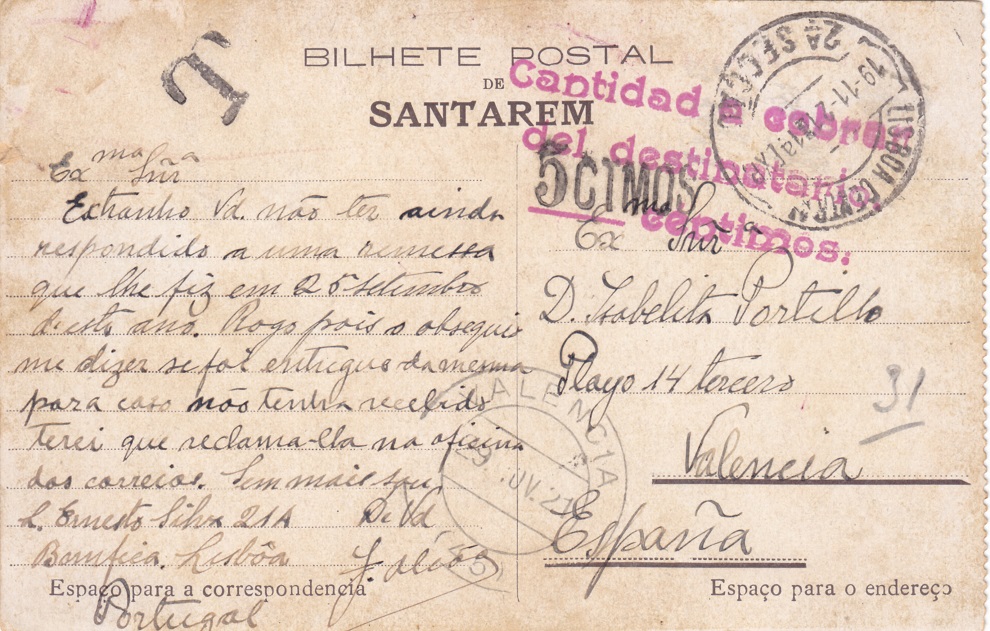 T
BILHETE POSTAL
DE
SANTAREM
Cantidad a cobrar
del destinatario
5 CTMOS
centimos.
LISBOA CENTRAL
2ª SECÇÃO
19-11-2
Exma Snra
Extranho Vd. não ter ainda
respondido a uma remessa
que lhe fiz em 25 setembro
d'este ano. Rogo pois o obsequio
me dizer se foi entregue da mesma
para caso não tenha recebido
terei que reclama-lla na oficina
dos correios. Sem mais sou
De Vd
L. Ernesto Silva 21A
Bemfica. Lisbôa
Portugal
Exma Snra
D. Isabelita Portillo
Playo 14 tercero
Valencia
España
31
VALENCIA
Espaço para a correspondencia
Espaço para o endereço